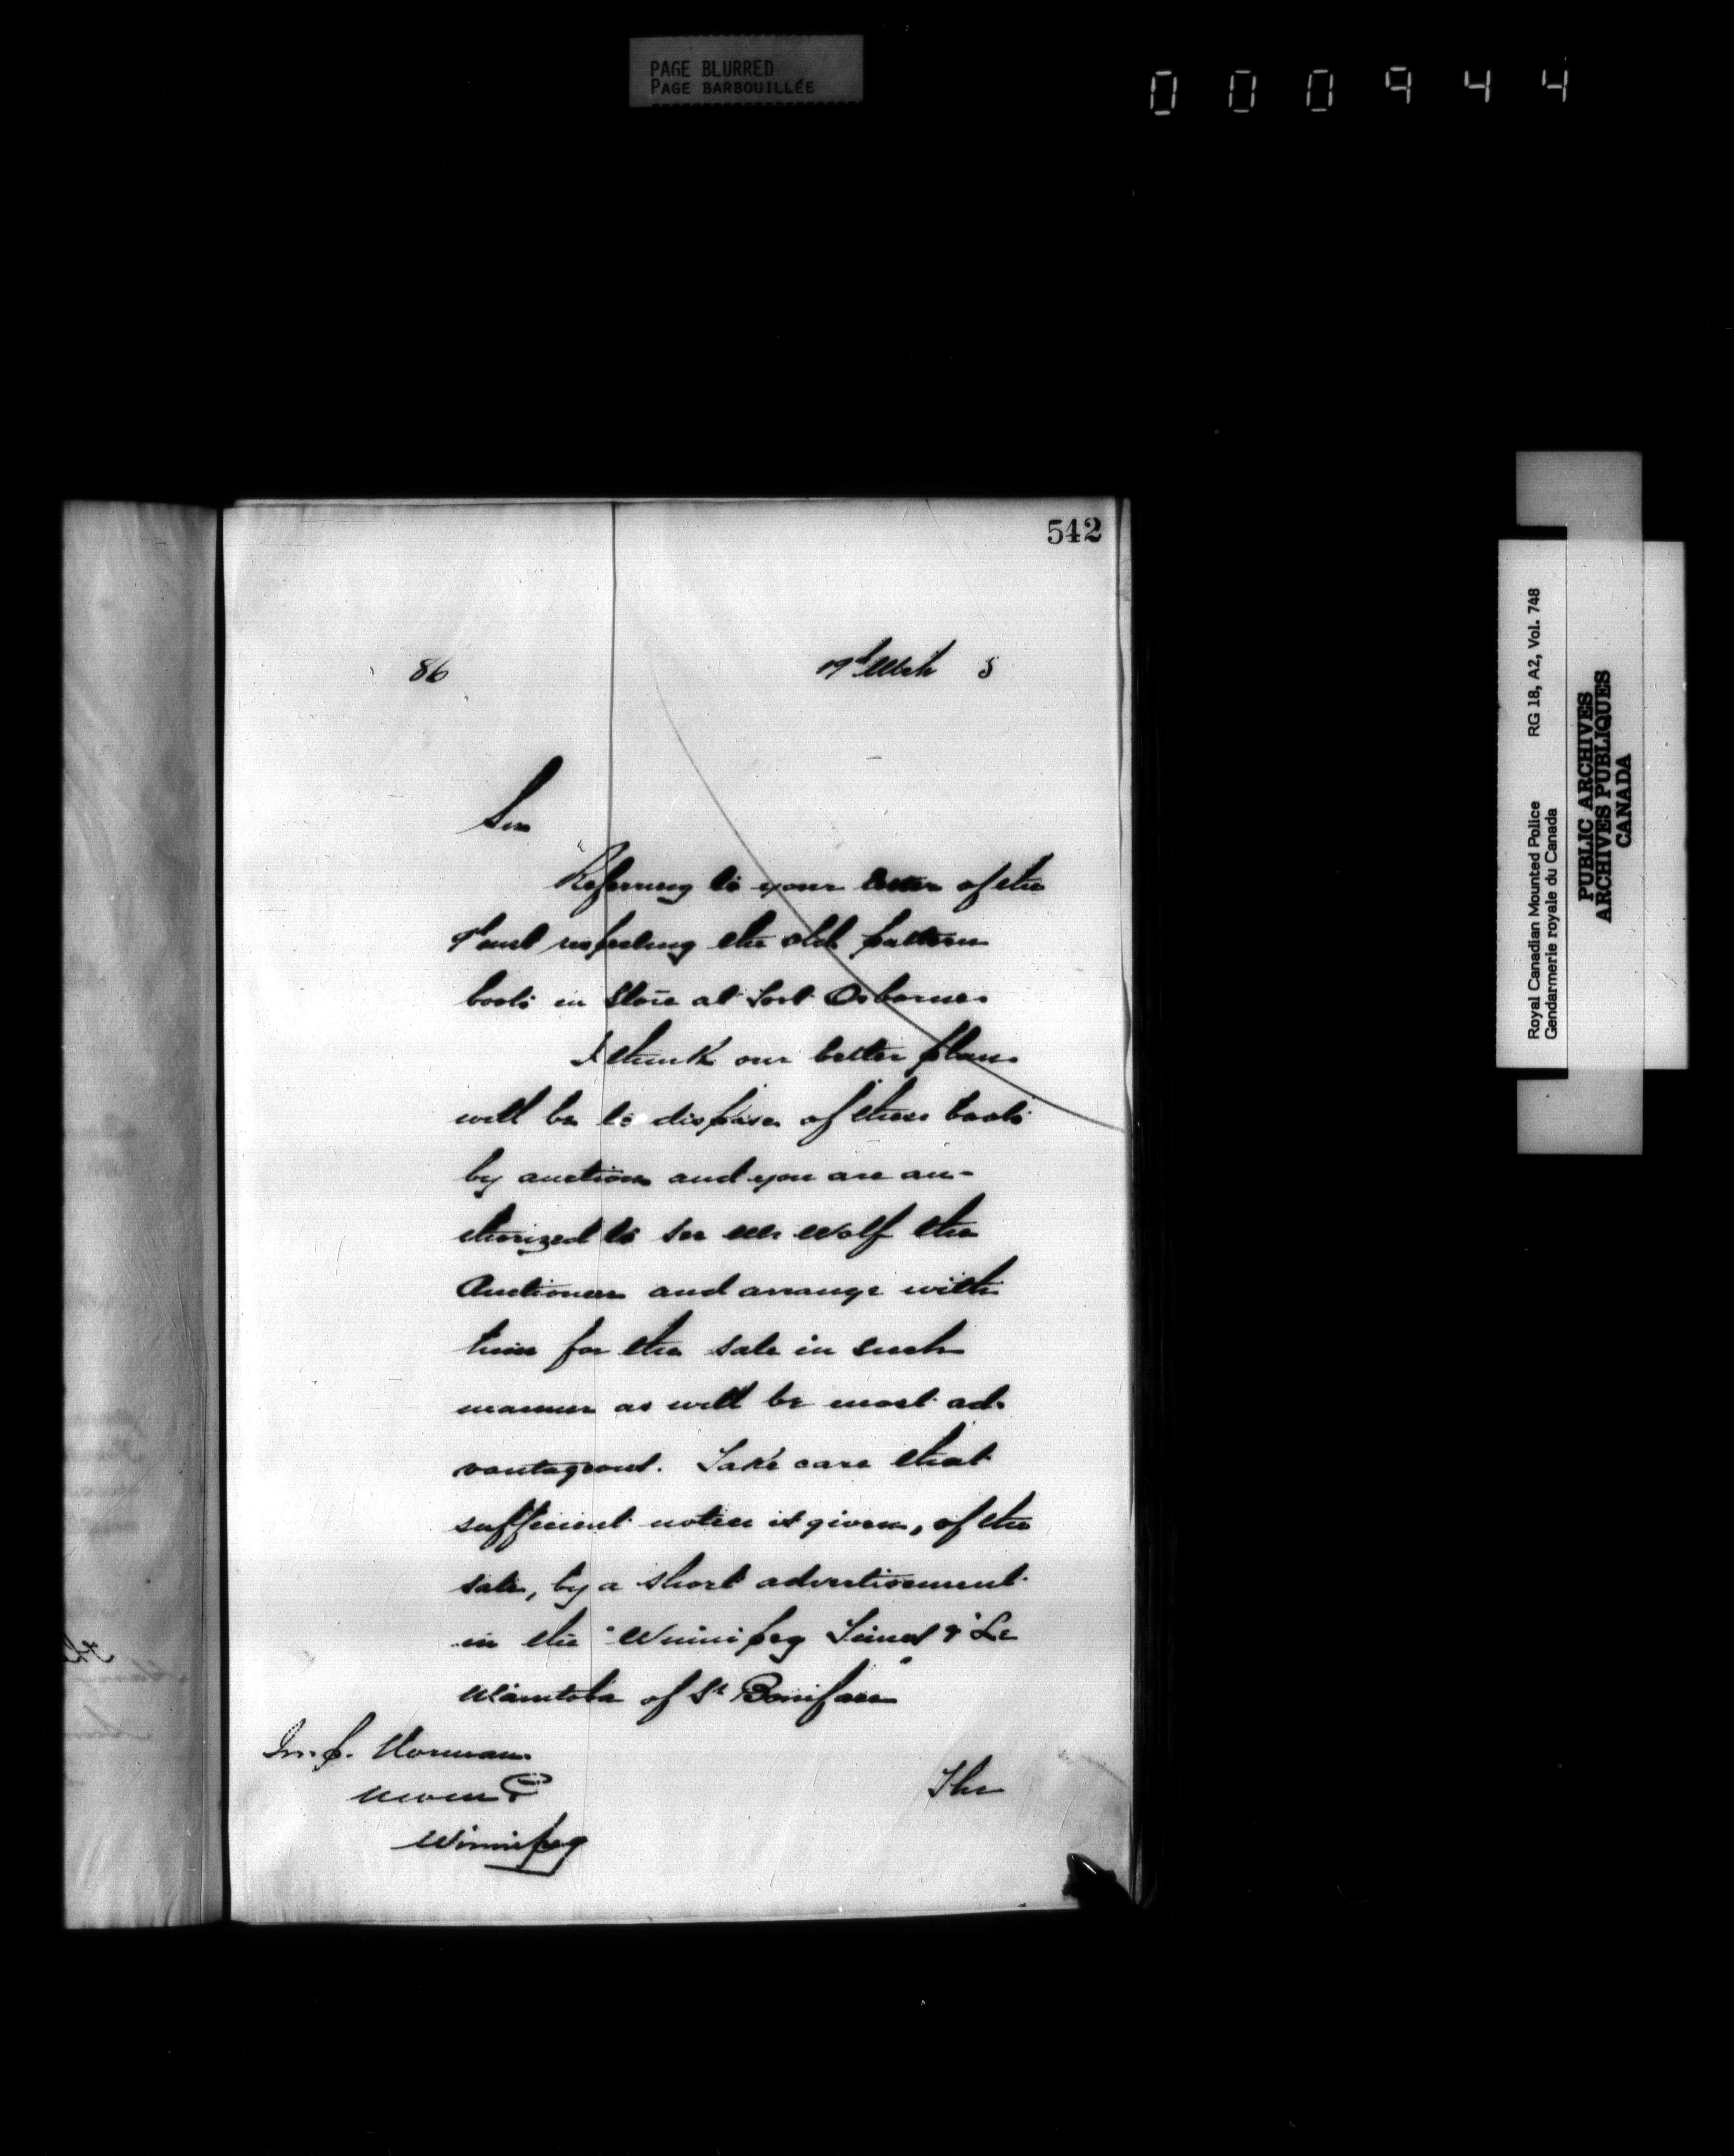 PAGE BLURRED
PAGE BARBOUILLÉE
000944
542
86 19th Mch 5
Sir
Referring to your letter of the
9th inst respecting the old pattern
boots in Store at Fort Osborne
I think our better plan
will be to dispose of these boots
by auction and you are au-
thorized to see Mr Wolf the
Auctioneer and arrange with
him for the sale in such
manner as will be most ad-
vantageous. Take care that
sufficient notice is given, of the
sale, by a short advertisement
in the "Winnipeg Times & "Le
Manitoba of St Boniface"
Insp. Norman
NWMP
Winnipeg
The
Royal Canadian Mounted Police RG 18, A2, Vol. 748
Gendarmerie royale du Canada
PUBLIC ARCHIVES
ARCHIVES PUBLIQUES
CANADA